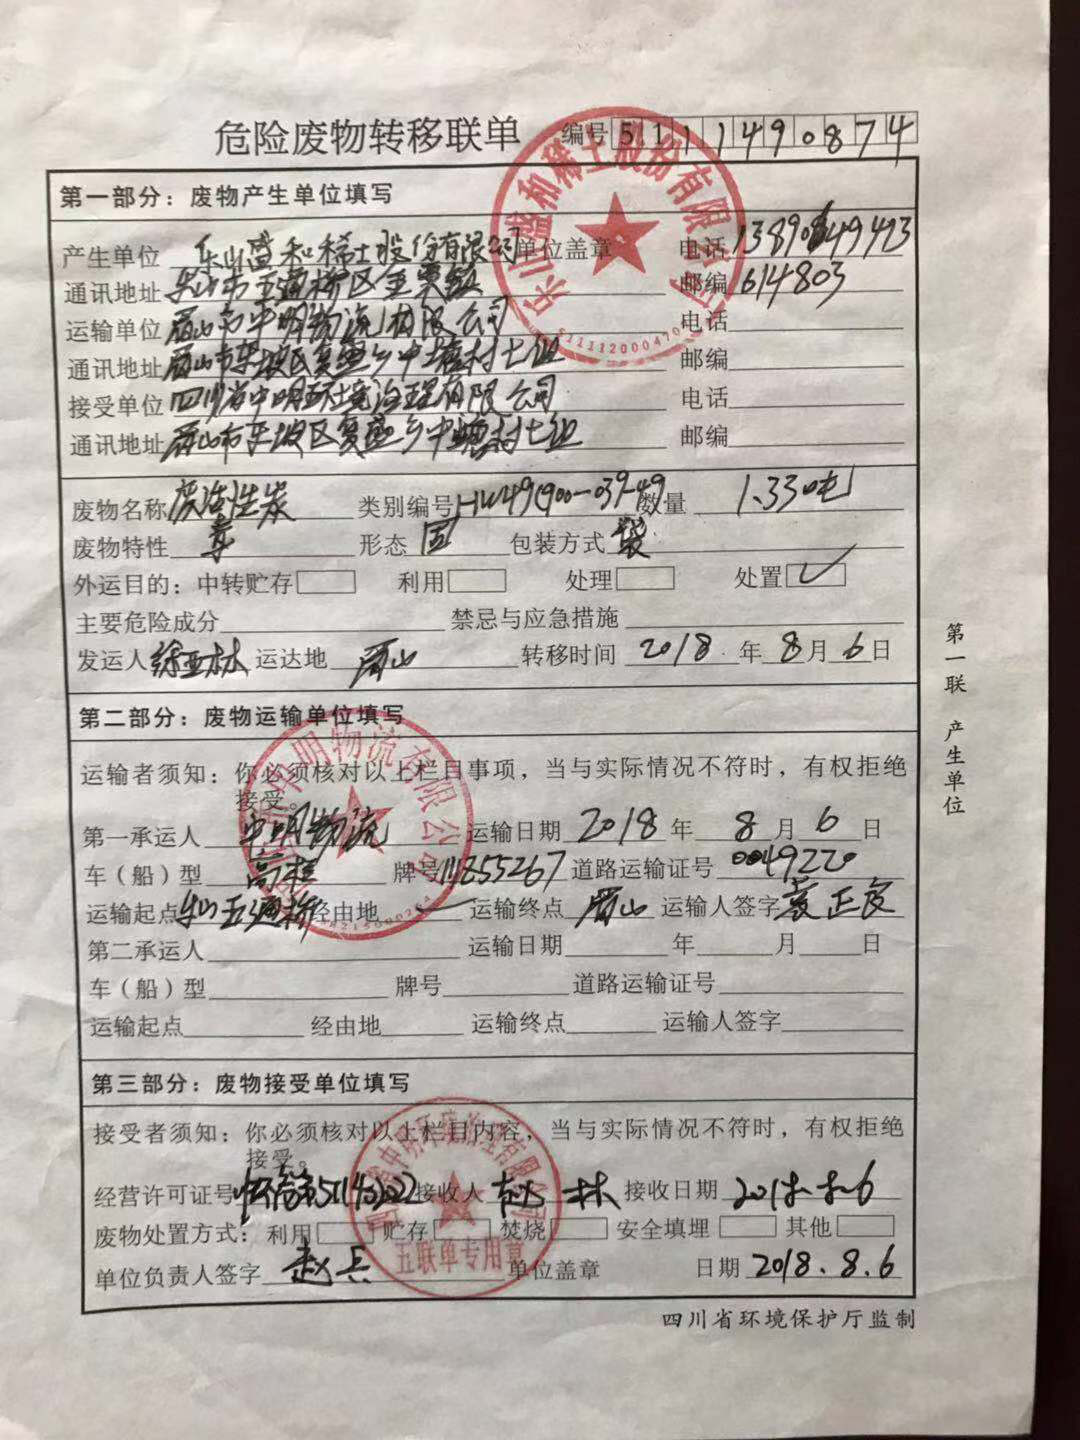 危险废物转移联单 编号 5111490874
第一部分：废物产生单位填写
产生单位 乐山盛和稀土股份有限公司 单位盖章 电话
通讯地址 乐山市五通桥区金粟镇 邮编 614803
运输单位 眉山市中明物流有限公司 电话
通讯地址 眉山市东坡区复盛乡中塘村七组 邮编
接受单位 四川省中明环境治理有限公司 电话
通讯地址 眉山市东坡区复盛乡中塘村七组 邮编
废物名称 废活性炭 类别编号 HW49(900-039-49 数量 1.330吨
废物特性 毒 形态 固 包装方式 袋
外运目的：中转贮存 利用 处理 处置 ✓
主要危险成分 禁忌与应急措施
发运人 徐亚林 运达地 眉山 转移时间 2018 年 8月 6日
第二部分：废物运输单位填写
运输者须知：你必须核对以上栏目事项，当与实际情况不符时，有权拒绝
接受。
第一承运人 中明物流 运输日期 2018 年 8 月 6 日
车（船）型 高栏 牌号 道路运输证号 0049220
运输起点 乐山五通桥 经由地 — 运输终点 眉山 运输人签字
第二承运人 运输日期 年 月 日
车（船）型 牌号 道路运输证号
运输起点 经由地 运输终点 运输人签字
第三部分：废物接受单位填写
接受者须知：你必须核对以上栏目内容，当与实际情况不符时，有权拒绝
接受。
经营许可证号 接收人 接收日期
废物处置方式：利用 贮存 焚烧 安全填埋 其他
单位负责人签字 赵兵 单位盖章 日期 2018.8.6
四川省环境保护厅监制
第一联 产生单位
乐山盛和稀土股份有限公司
中明物流有限公司
五联单专用章